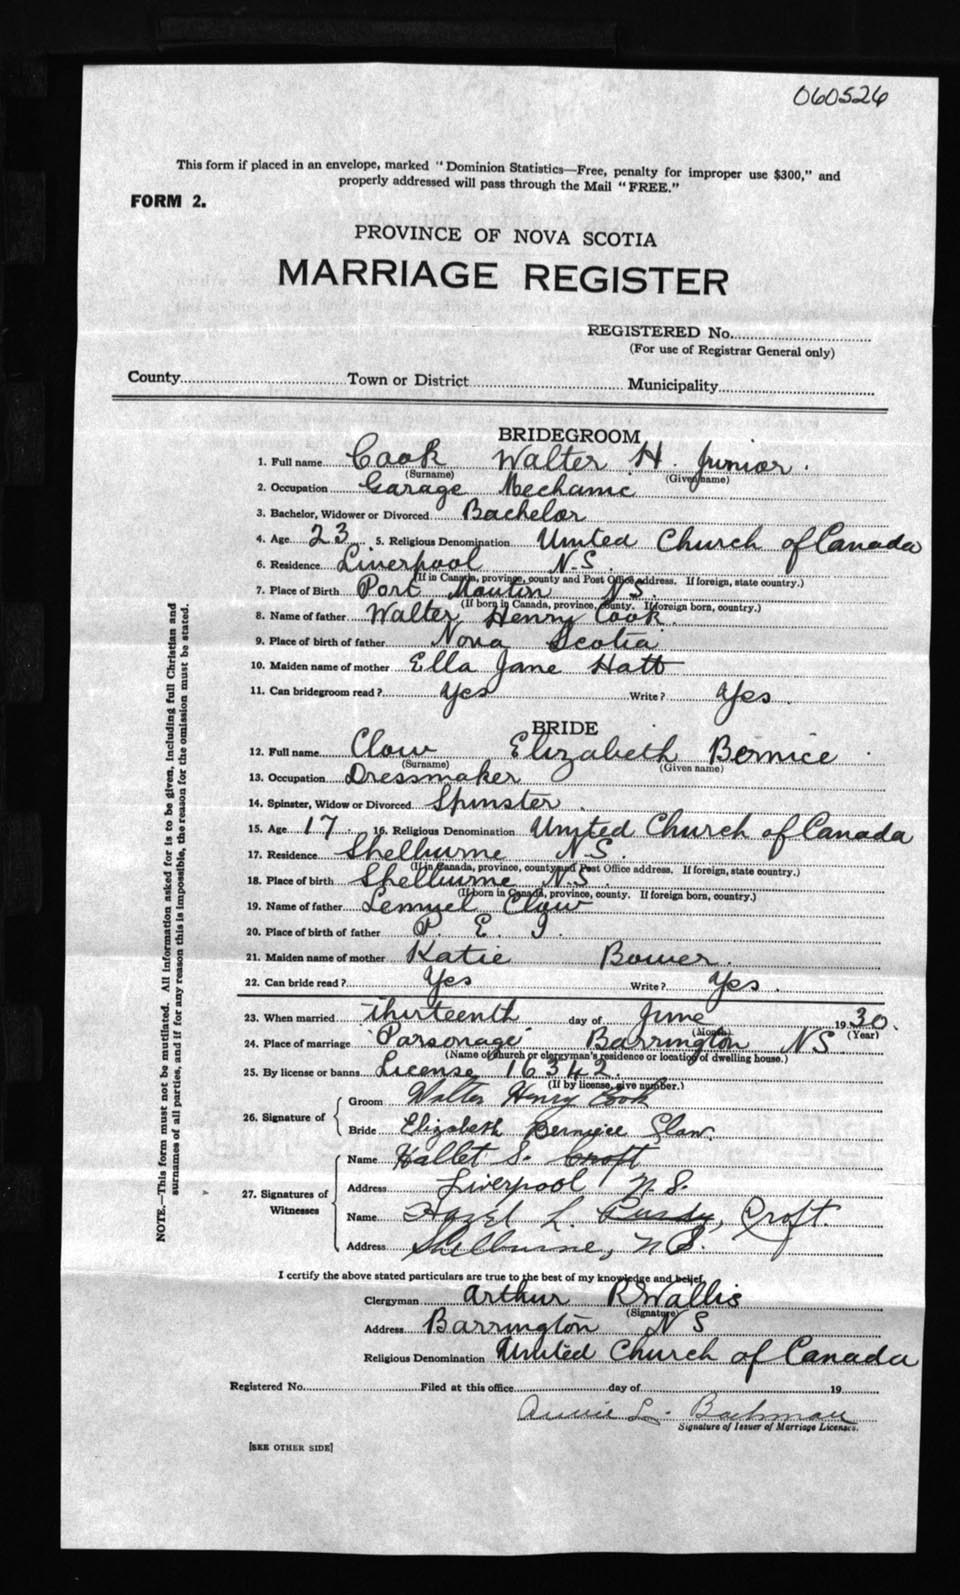 060526
This form if placed in an envelope, marked "Dominion Statistics—Free, penalty for improper use $300," and
properly addressed will pass through the Mail "FREE."
FORM 2.
PROVINCE OF NOVA SCOTIA
MARRIAGE REGISTER
REGISTERED No.
(For use of Registrar General only)
County Town or District Municipality
BRIDEGROOM
1. Full name Cook Walter H. Junior.
(Surname) (Given name)
2. Occupation Garage Mechanic
3. Bachelor, Widower or Divorced Bachelor
4. Age 23 5. Religious Denomination United Church of Canada
6. Residence Liverpool N.S.
(If in Canada, province, county and Post Office address. If foreign, state country.)
7. Place of Birth Port Moutin N.S.
(If born in Canada, province, county. If foreign born, country.)
8. Name of father Walter Henry Cook.
9. Place of birth of father Nova Scotia
10. Maiden name of mother Ella Jane Hatt
11. Can bridegroom read? Yes Write? Yes.
BRIDE
12. Full name Clow Elizabeth Bernice
(Surname) (Given name)
13. Occupation Dressmaker
14. Spinster, Widow or Divorced Spinster.
15. Age 17. 16. Religious Denomination United Church of Canada
17. Residence Shelburne N.S.
(If in Canada, province, county and Post Office address. If foreign, state country.)
18. Place of birth Shelburne N.S.
(If born in Canada, province, county. If foreign born, country.)
19. Name of father Lemuel Clow
20. Place of birth of father P. E. I.
21. Maiden name of mother Katie Bower.
22. Can bride read? Yes Write? Yes.
23. When married Thirteenth day of June 1930.
(Month) (Year)
24. Place of marriage "Parsonage" Barrington NS
(Name of church or clergyman's residence or location of dwelling house.)
25. By license or banns License 16342.
(If by license, give number.)
26. Signature of
Groom Walter Henry Cook
Bride Elizabeth Bernice Clow.
27. Signatures of Witnesses
Name Hallet S. Croft
Address Liverpool N.S.
Name Hazel L. Purdy, Croft.
Address Shelburne, N.S.
I certify the above stated particulars are true to the best of my knowledge and belief.
Clergyman Arthur R Wallis
(Signature)
Address Barrington N S
Religious Denomination United Church of Canada
Registered No. Filed at this office day of 19
Annie L. Bachman
Signature of Issuer of Marriage Licenses.
[SEE OTHER SIDE]
NOTE.—This form must not be mutilated. All information asked for is to be given, including full Christian and
surnames of all parties, and if for any reason this is impossible, the reason for the omission must be stated.